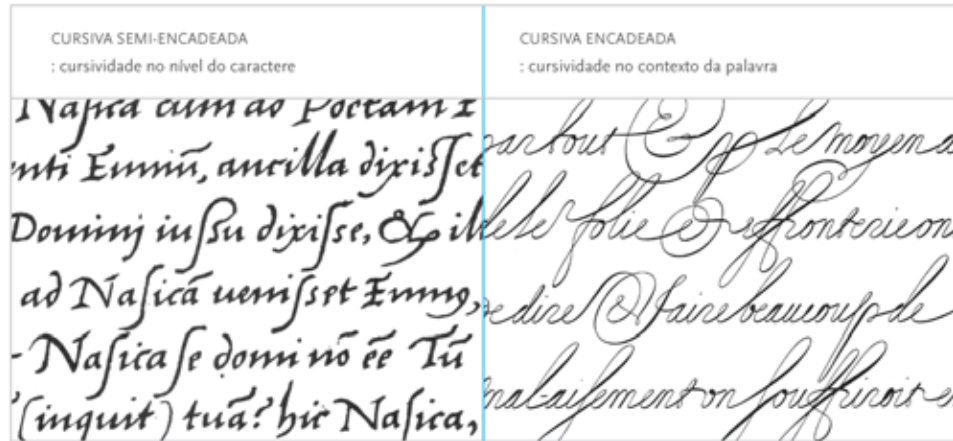 CURSIVA SEMI-ENCADEADA
: cursividade no nível do caractere
Naſica cum ad Poetam E
enti Enniū, ancilla dixiſſet
Dominū iuſſu dixiſse, & ill
ad Naſicā ueniſset Ennıꝰ,
- Naſica ſe domi nō eē Tū
(inquit) tuā? hic Naſica,
CURSIVA ENCADEADA
: cursividade no contexto da palavra
par tout & Le moyen d
de le folie & effronterie on
de dire & faire beaucoup de
malaiſement on ſouffriroit